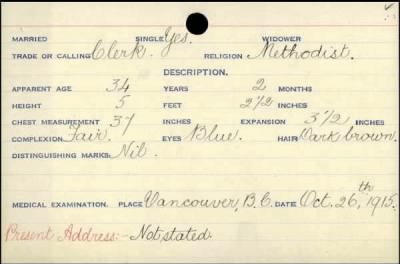 MARRIED SINGLE Yes. WIDOWER
TRADE OR CALLING Clerk. RELIGION Methodist.
DESCRIPTION.
APPARENT AGE 34 YEARS 2 MONTHS
HEIGHT 5 FEET 2 1/2 INCHES
CHEST MEASUREMENT 37 INCHES EXPANSION 3 1/2 INCHES
COMPLEXION Fair. EYES Blue. HAIR Dark brown.
DISTINGUISHING MARKS Nil.
MEDICAL EXAMINATION. PLACE Vancouver, B.C. DATE Oct. 26th 1915.
Present Address:- Not stated.